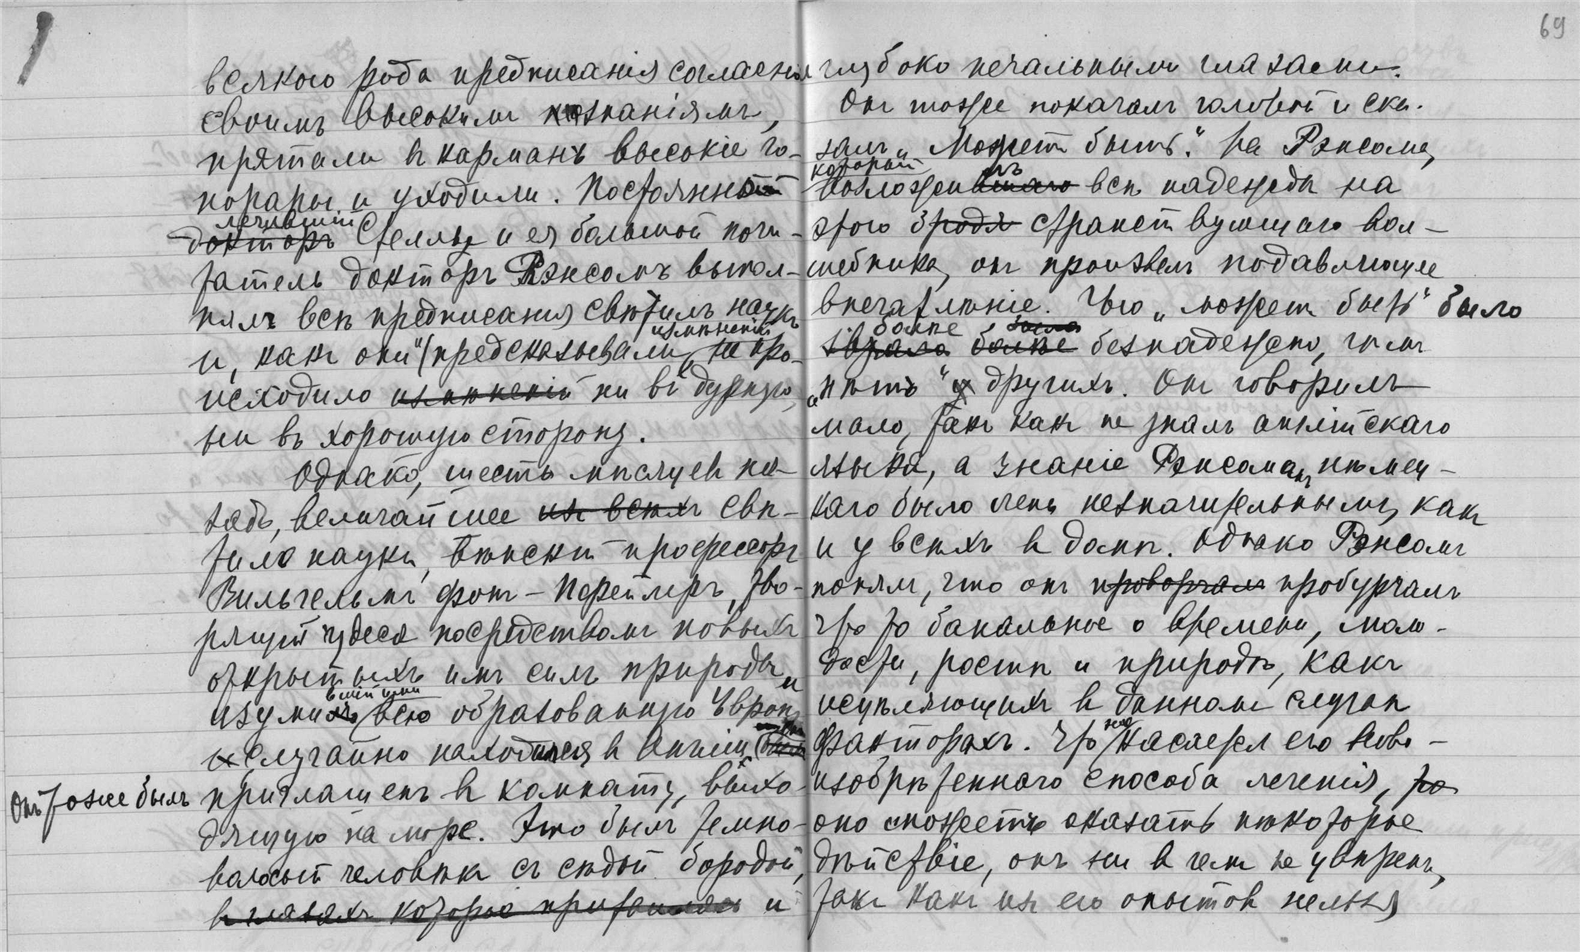 69
всякого рода предписанія согласно
своимъ высокимъ познаніямъ,
прятали в карманъ высокіе го-
норары и уходили. Постоянный
лечившій
докторъ Стеллу и ея большой почи-
татель докторъ Рэнсомъ выпол-
нялъ всѣ предписанія свѣтилъ наукъ
измѣненій
и, какъ они предсказывали, не про-
исходило измѣненій ни въ дурную,
ни въ хорошую сторону.
Однако, шесть мѣсяцев на-
задъ, величайшее из всѣхъ свѣ-
тило науки, Вѣнскій профессоръ
Вильгельмъ фонъ-Порейперъ, тво-
рящій чудеса посредствомъ новыхъ
открытыхъ имъ силъ природы и
изумившій всю образованную Европу
случайно находился в Англіи
Онъ тоже былъ
приглашенъ в комнату, выхо-
дящую на море. Это былъ темно-
волосый человѣкъ съ сѣдой бородой,
в глазахъ которые и
глубоко печальными глазами.
Онъ тоже покачалъ головой и ска-
залъ „Можетъ быть“. На Рэнсома,
который
возложилъ всѣ надежды на
этого вродѣ странствующаго вол-
шебника, онъ произвелъ подавляющее
впечатлѣніе. Его „можетъ быть“ было
болѣе
звучало болѣе безнадежно, чѣмъ
„нѣтъ“ у другихъ. Онъ говорилъ
мало, такъ какъ не зналъ англійскаго
языка, а знаніе Рэнсомомъ нѣмец-
каго было незначительнымъ, какъ
и у всѣхъ в домѣ. Однако Рэнсомъ
понялъ, что онъ проворчалъ пробурчалъ
что то банальное о времени, моло-
дости, ростѣ и природѣ, какъ
исцѣляющихъ в данномъ случаѣ
факторахъ. Что же касается его ново-
изобрѣтеннаго способа леченія, то
оно сможетъ оказать нѣкоторое
дѣйствіе, онъ ни в чемъ не увѣренъ,
такъ какъ из его опытов нельзя